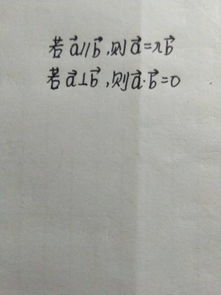 若a⃗∥b⃗,则a⃗=λb⃗
若a⃗⊥b⃗,则a⃗·b⃗=0